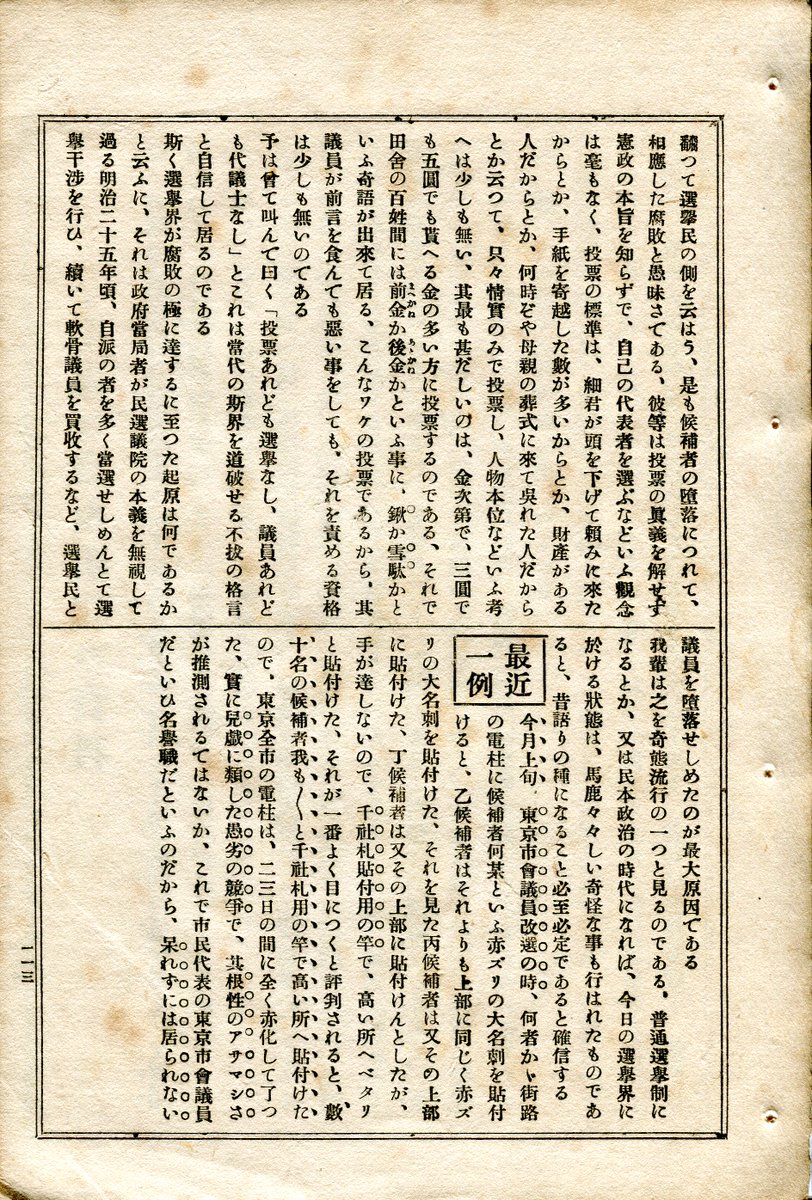 飜つて選擧民の側を云はう、是も候補者の墮落につれて、
相應した腐敗と愚昧さである、彼等は投票の眞義を解せず
憲政の本旨を知らずで、自己の代表者を選ぶなどいふ觀念
は毫もなく、投票の標準は、細君が頭を下げて頼みに來た
からとか、手紙を寄越した數が多いからとか、財產がある
人だからとか、何時ぞや母親の葬式に來て吳れた人だから
とか云つて、只々情實のみで投票し、人物本位などいふ考
へは少しも無い、其最も甚だしいのは、金次第で、三圓で
も五圓でも貰へる金の多い方に投票するのである、それで
田舍の百姓間には前金か後金かといふ事に、鍬か雪駄かと
いふ奇語が出來て居る、こんなワケの投票であるから、其
議員が前言を食んでも惡い事をしても、それを責める資格
は少しも無いのである
予は曾て叫んで曰く「投票あれども選擧なし、議員あれど
も代議士なし」とこれは當代の斯界を道破せる不拔の格言
と自信して居るのである
斯く選擧界が腐敗の極に達するに至つた起原は何であるか
と云ふに、それは政府當局者が民選議院の本義を無視して
過る明治二十五年頃、自派の者を多く當選せしめんとて選
擧干涉を行ひ、續いて軟骨議員を買收するなど、選擧民と
議員を墮落せしめたのが最大原因である
我輩は之を奇態流行の一つと見るのである、普通選擧制に
なるとか、又は民本政治の時代になれば、今日の選擧界に
於ける狀態は、馬鹿々々しい奇怪な事も行はれたものであ
ると、昔語りの種になること必至必定であると確信する
最近
一例
今月上旬、東京市會議員改選の時、何者かゞ街路
の電柱に候補者何某といふ赤ズリの大名刺を貼付
けると、乙候補者はそれよりも上部に同じく赤ズ
リの大名刺を貼付けた、それを見た丙候補者は又その上部
に貼付けた、丁候補者は又その上部に貼付けんとしたが、
手が達しないので、千社札貼付用の竿で、高い所へベタリ
と貼付けた、それが一番よく目につくと評判されると、數
十名の候補者我も〳〵と千社札用の竿で高い所へ貼付けた
ので、東京全市の電柱は、二三日の間に全く赤化して了つ
た、實に兒戲に類した愚劣の競爭で、其根性のアサマシさ
が推測されるてはないか、これで市民代表の東京市會議員
だといひ名譽職だといふのだから、呆れずには居られない
一一三